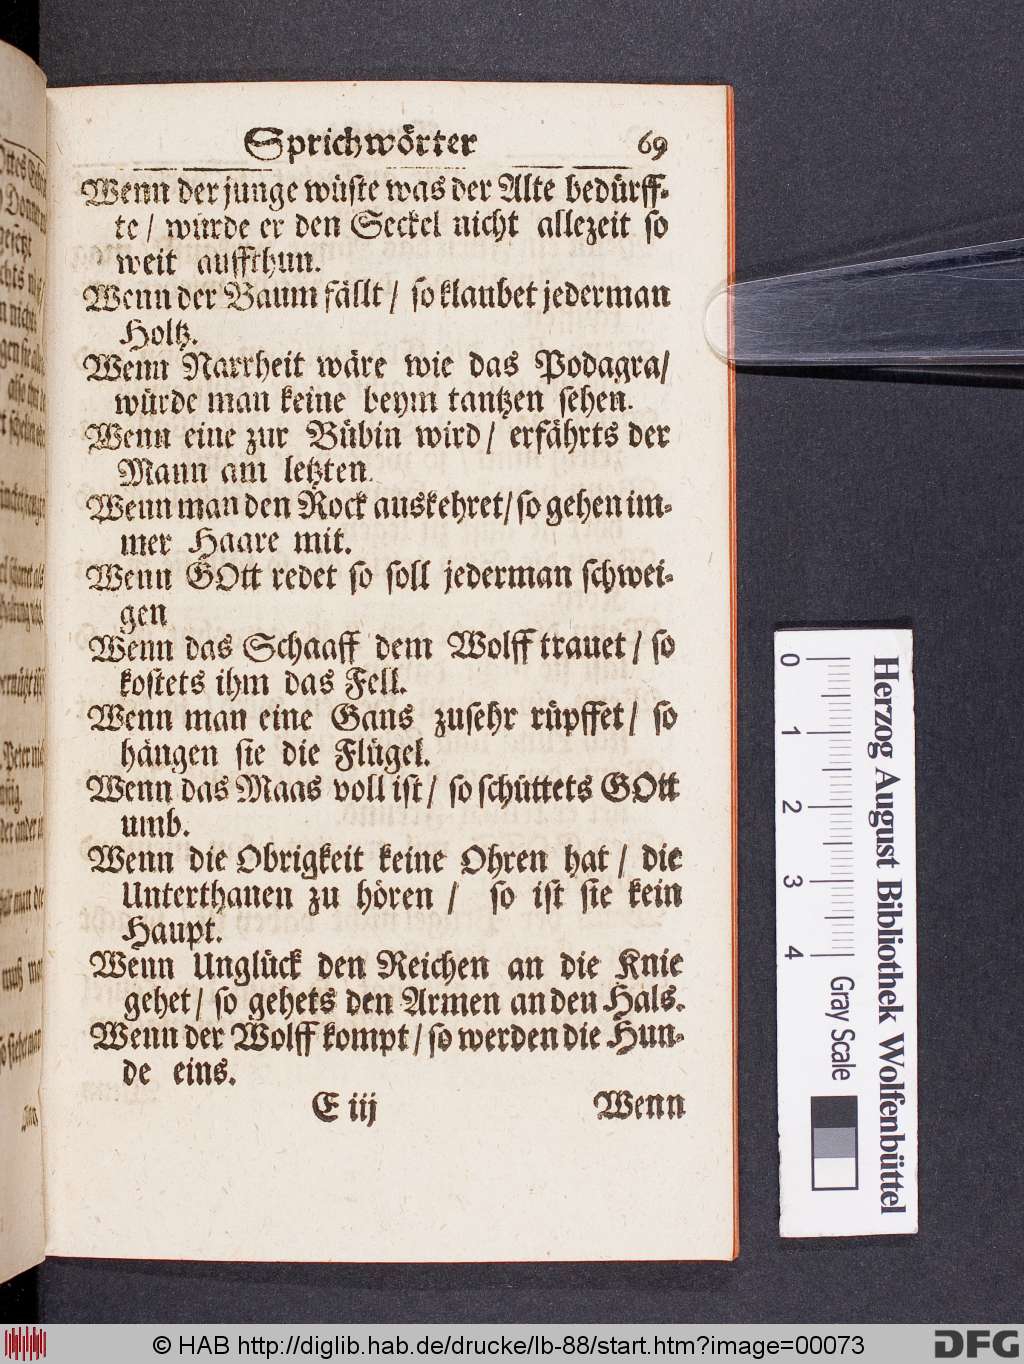 Sprichwörter 69
Wenn der junge wüste was der Alte bedürff-
te / würde er den Seckel nicht allezeit so
weit auffthun.
Wenn der Baum fällt / so klaubet jederman
Holtz.
Wenn Narrheit wäre wie das Podagra /
würde man keine beym tantzen sehen.
Wenn eine zur Bübin wird / erfährts der
Mann am letzten.
Wenn man den Rock auskehret / so gehen im-
mer Haare mit.
Wenn GOtt redet so soll jederman schwei-
gen
Wenn das Schaaff dem Wolff trauet / so
kostets ihm das Fell.
Wenn man eine Gans zusehr rüpffet / so
hängen sie die Flügel.
Wenn das Maas voll ist / so schüttets GOtt
umb.
Wenn die Obrigkeit keine Ohren hat / die
Unterthanen zu hören / so ist sie kein
Haupt.
Wenn Unglück den Reichen an die Knie
gehet / so gehets den Armen an den Hals.
Wenn der Wolff kompt / so werden die Hun-
de eins.
E iij Wenn
Herzog August Bibliothek Wolfenbüttel
0 1 2 3 4 Gray Scale
© HAB http://diglib.hab.de/drucke/lb-88/start.htm?image=00073
DFG